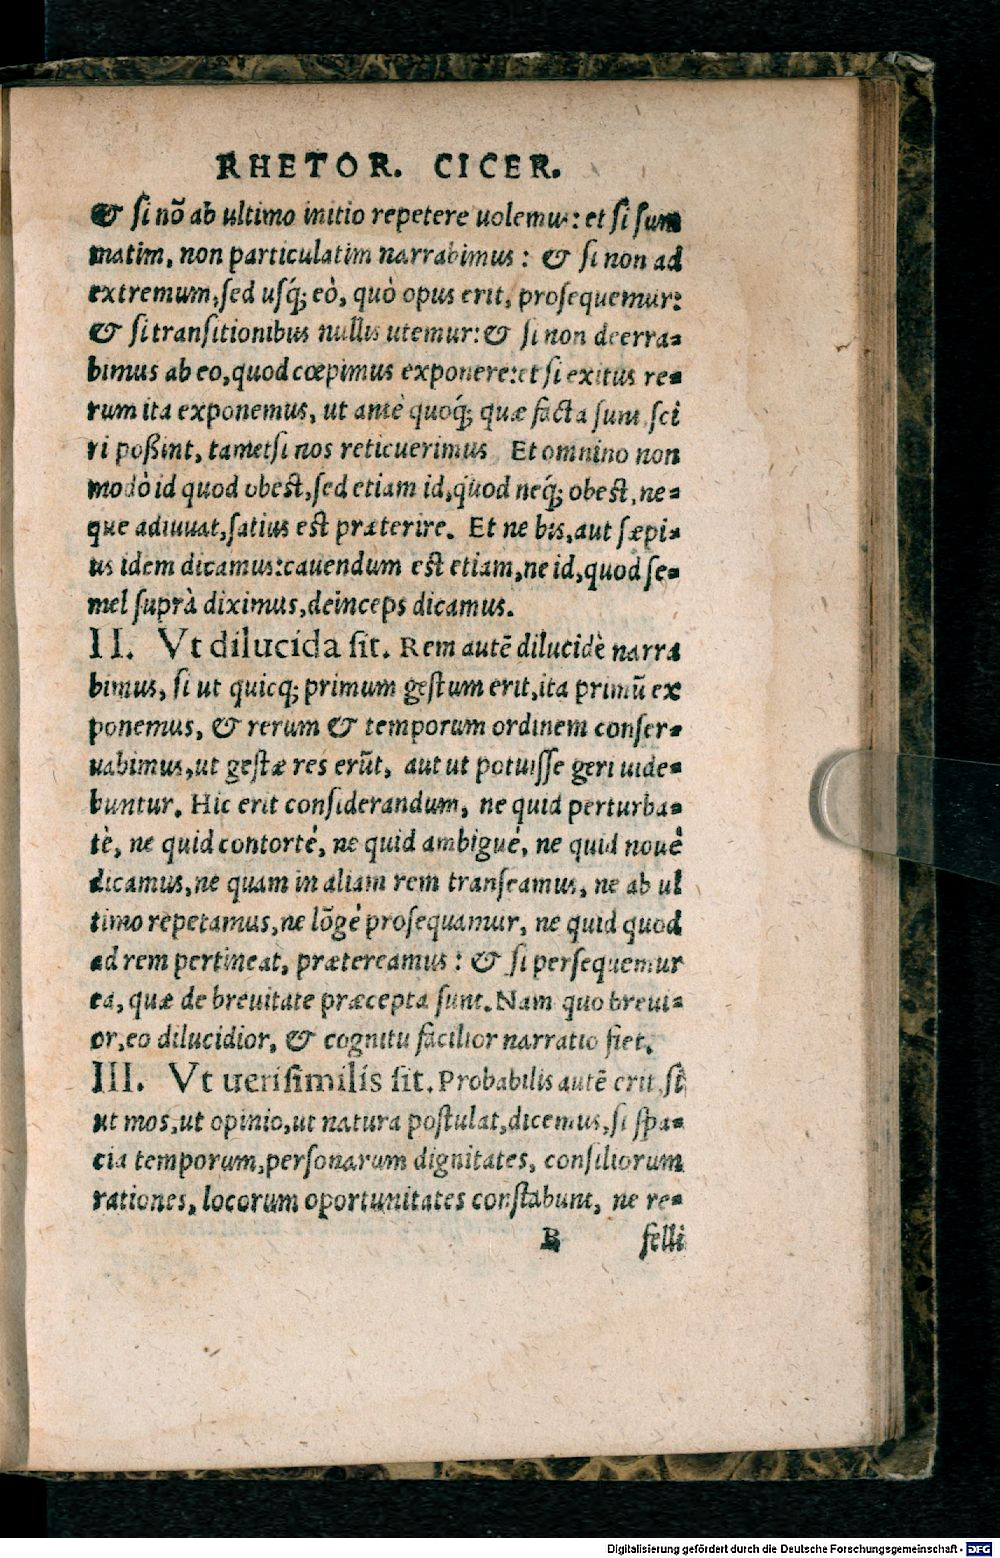 RHETOR. CICER.
& si nõ ab ultimo initio repetere uolemus: et si sum
matim, non particulatim narrabimus: & si non ad
extremum, sed usq; eò, quò opus erit, prosequemur:
& si transitionibus nullis utemur: & si non deerra-
bimus ab eo, quod cœpimus exponere: et si exitus re-
rum ita exponemus, ut antè quoq; quæ facta sunt, sci
ri poßint, tametsi nos reticuerimus Et omnino non
modò id quod obest, sed etiam id, quod neq; obest, ne-
que adiuuat, satius est præterire. Et ne bis, aut sæpi-
us idem dicamus: cauendum est etiam, ne id, quod se-
mel suprà diximus, deinceps dicamus.
II. Vt dilucida sit. Rem autẽ dilucidè narra
bimus, si ut quicq; primum gestum erit, ita primũ ex
ponemus, & rerum & temporum ordinem conser-
uabimus, ut gestæ res erũt, aut ut potuisse geri uide-
buntur. Hic erit considerandum, ne quid perturba-
tè, ne quid contorté, ne quid ambigué, ne quid nouè
dicamus, ne quam in aliam rem transeamus, ne ab ul
timo repetamus, ne lõgè prosequamur, ne quid quod
ad rem pertineat, prætereamus: & si persequemur
ea, quæ de breuitate præcepta sunt. Nam quo breui-
or, eo dilucidior, & cognitu facilior narratio fiet.
III. Vt uerisimilis sit. Probabilis autẽ erit, si
ut mos, ut opinio, ut natura postulat, dicemus, si spa-
cia temporum, personarum dignitates, consiliorum
rationes, locorum oportunitates constabunt, ne re-
B felli
Digitalisierung gefördert durch die Deutsche Forschungsgemeinschaft - DFG